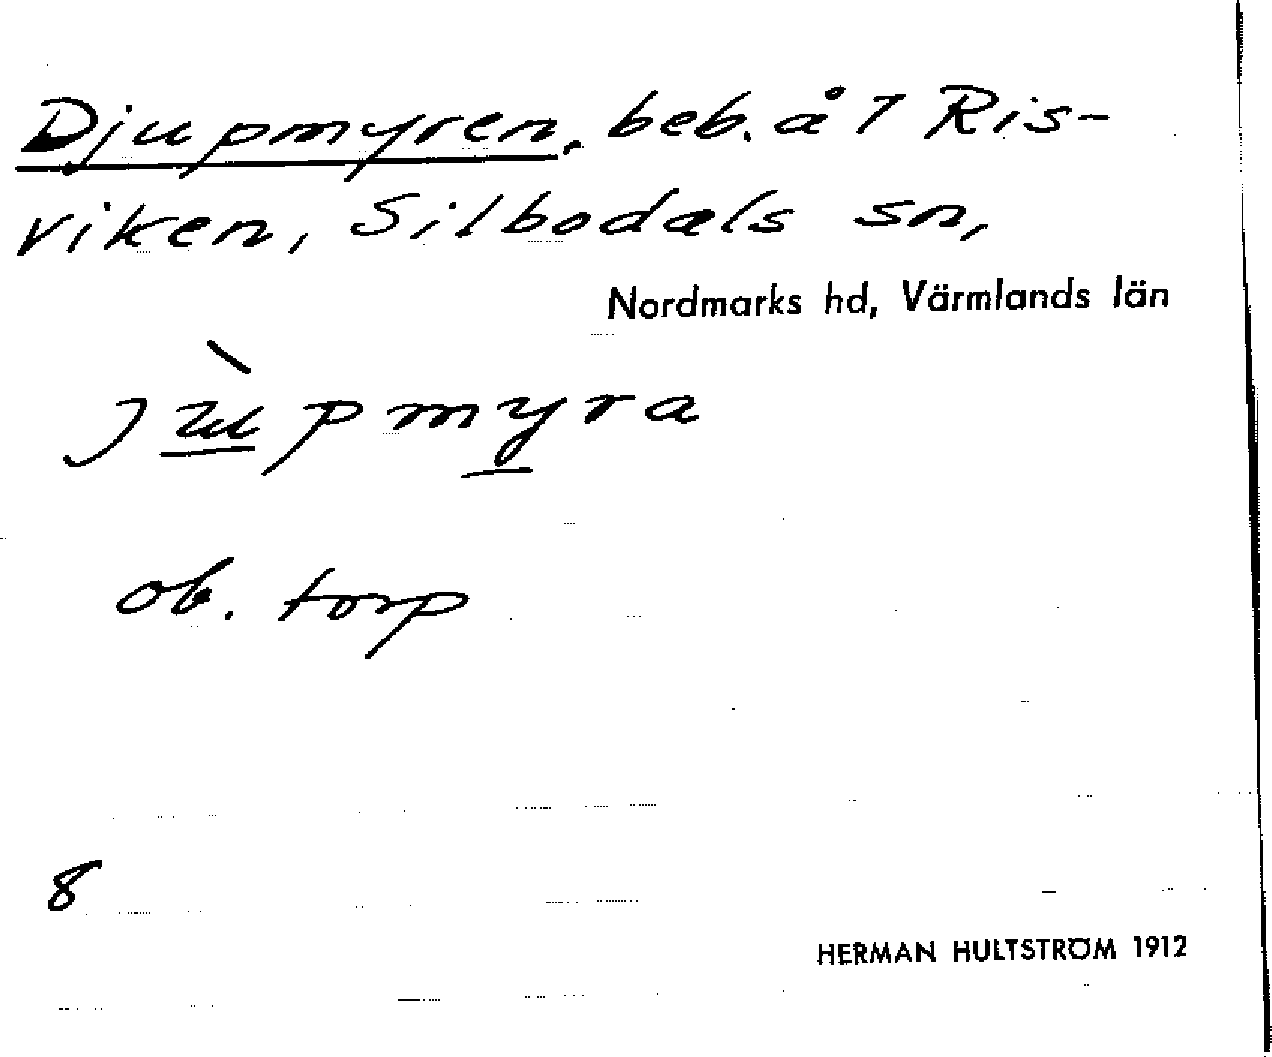 Djupmyren, beb. å 7 Ris-
viken, Silbodals sn,
Nordmarks hd, Värmlands län
jùpmyra
ob. torp
8
HERMAN HULTSTRÖM 1912